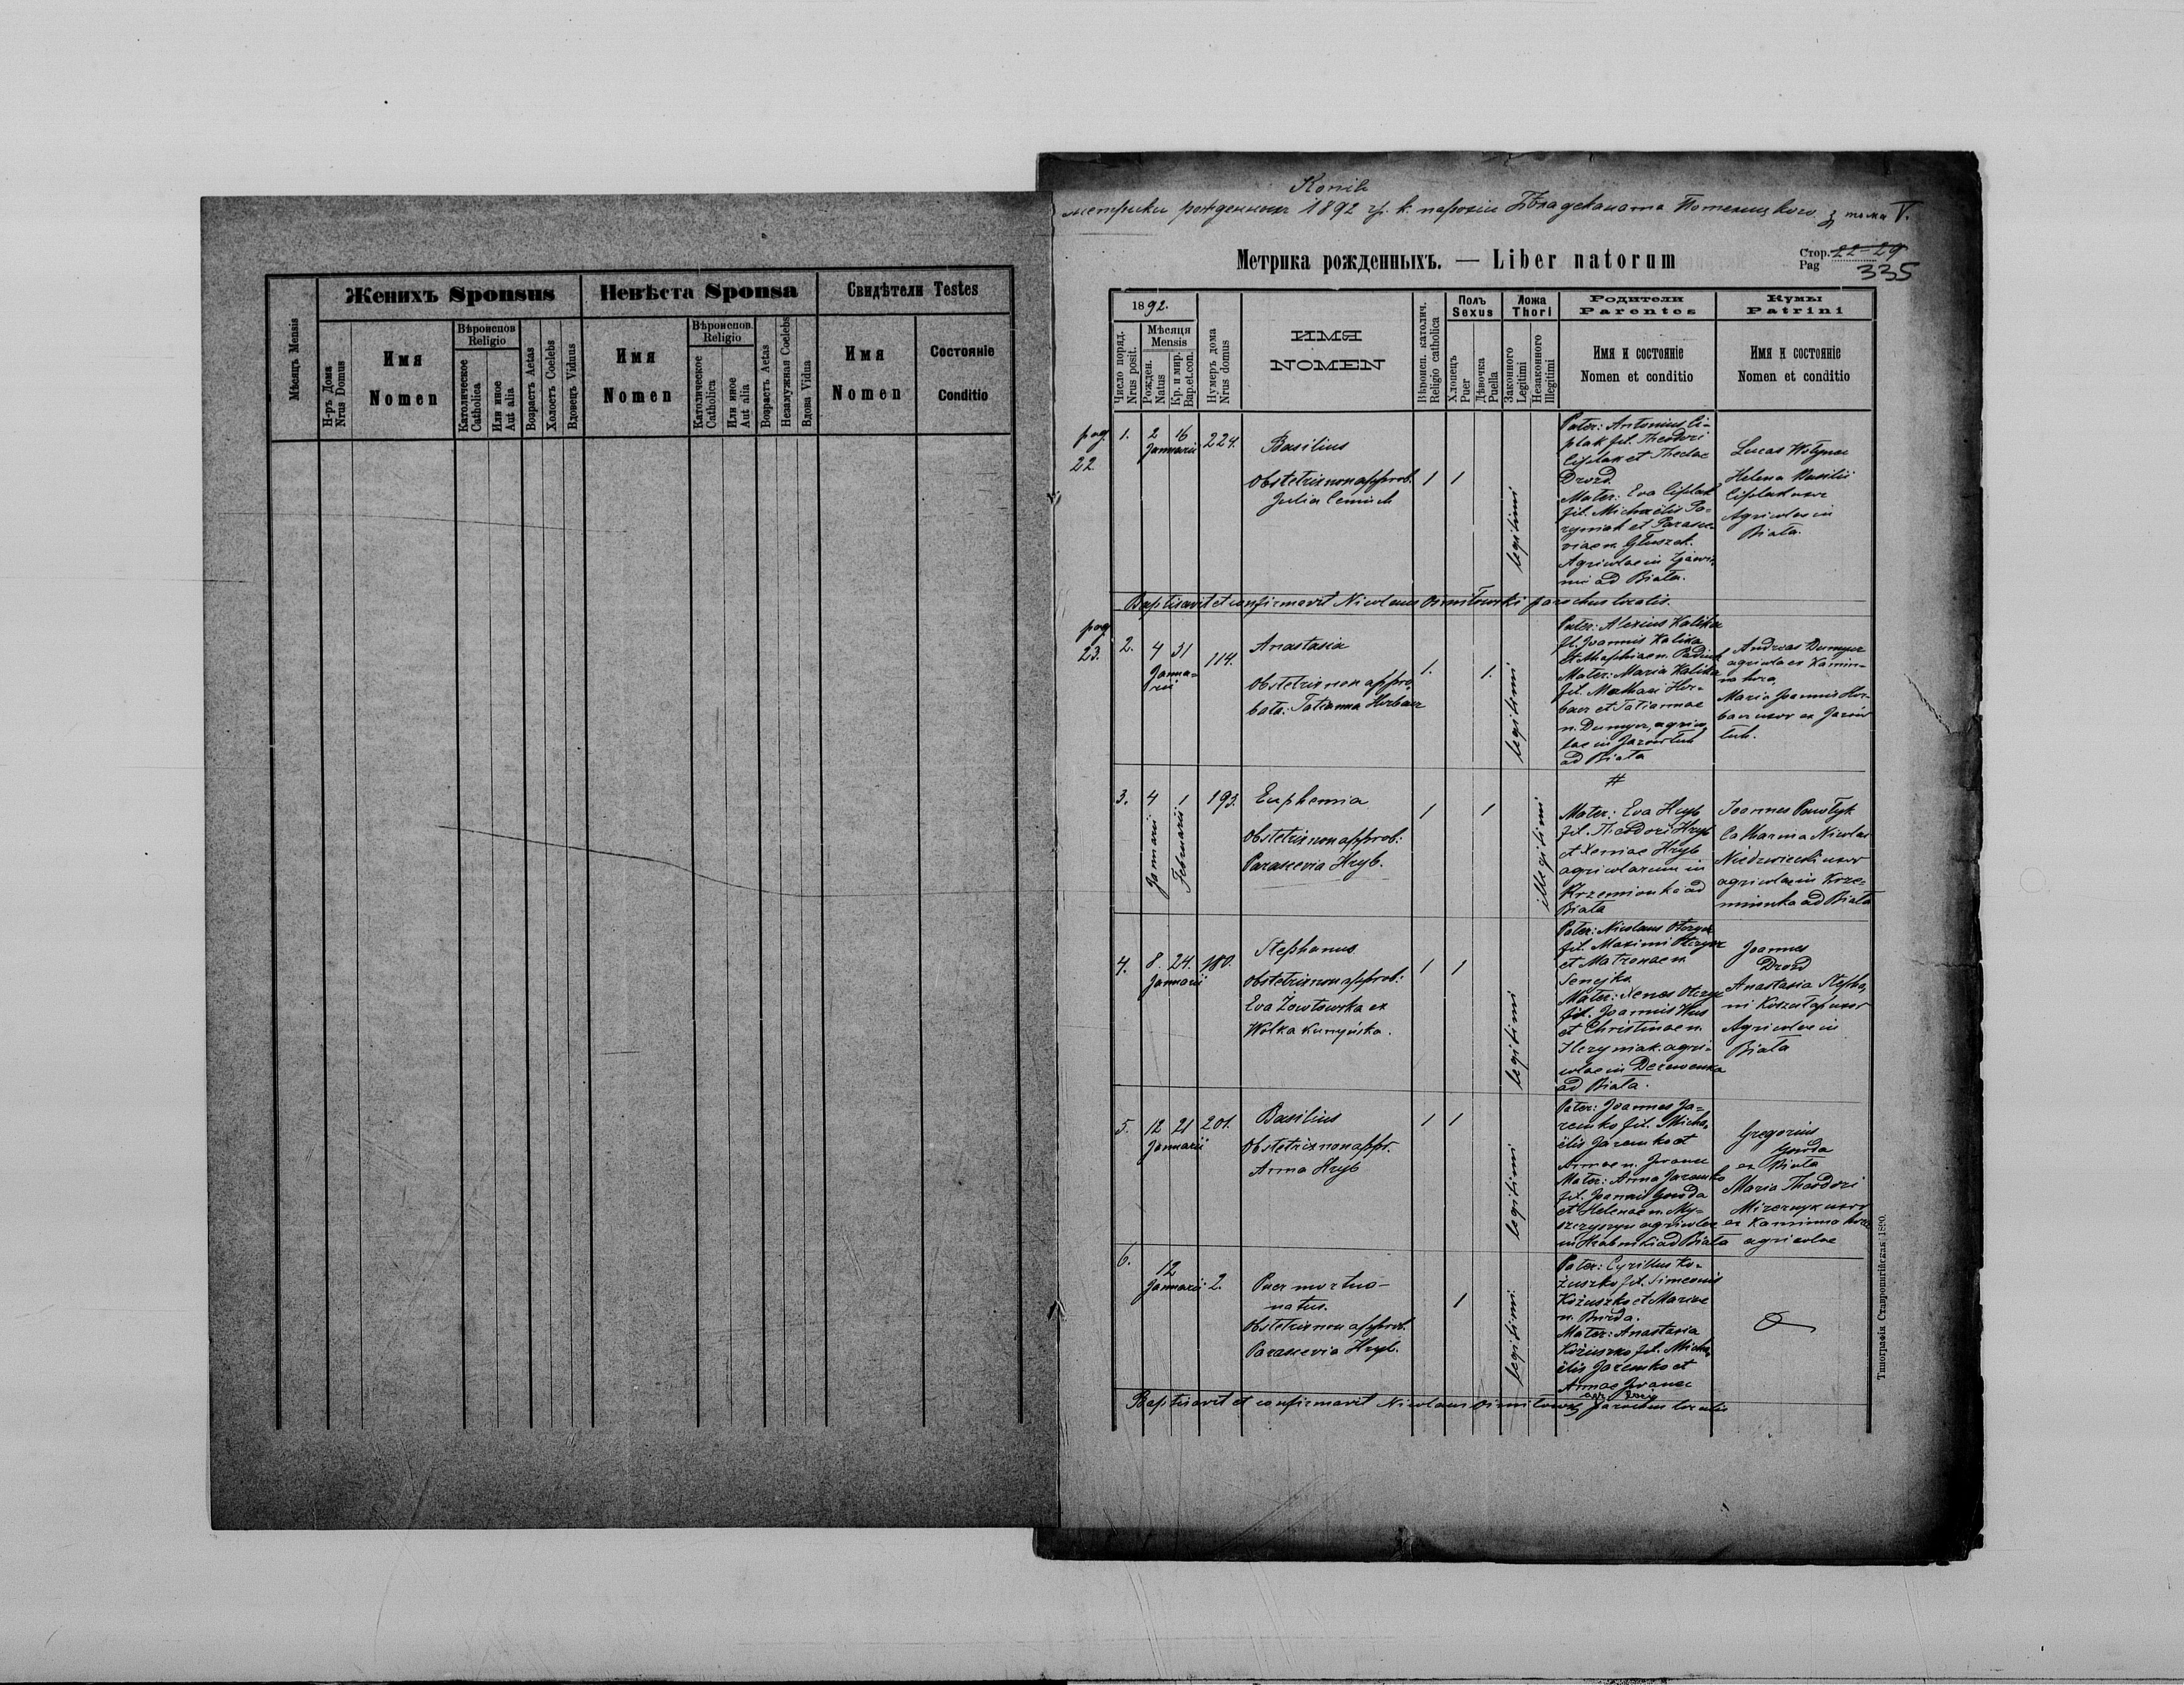 Женихъ Sponsus
Невѣста Sponsa
Свидѣтели Testes
Мѣсяцъ Mensis
Н-ръ Дома
Nrus Domus
Имя
Nomen
Вѣроиспов
Religio
Католическое
Catholica
Или иное
Aut alia
Возрастъ Aetas
Холостъ Coelebs
Вдовецъ Viduus
Имя
Nomen
Вѣроиспов.
Religio
Католическое
Catholica
Или иное
Aut alia
Возрастъ Aetas
Незамужная Coelebs
Вдова Vidua
Имя
Nomen
Состояніе
Conditio
Копія
метрики рожденныхъ 1892 гр. к. парохіи Бѣла деканата Потелицкого з тома V.
Метрика рожденныхъ. — Liber natorum
Стор. 22-29
Pag 335
1892.
Число поряд.
Nrus posit.
Мѣсяця
Mensis
Рожден.
Natus
Кр. и мир.
Bap. et con.
Нумеръ дома
Nrus domus
ИМЯ
NOMEN
Вѣроисп. католич.
Religio catholica
Полъ
Sexus
Хлопецъ
Puer
Дѣвочка
Puella
Ложа
Thori
Законного
Legitimi
Незаконного
Illegitimi
Родители
Parentes
Имя и состояніе
Nomen et conditio
Кумы
Patrini
Имя и состояніе
Nomen et conditio
pag.
22
1.
2 16
Januarii
224.
Basilius
Obstetrix non approb.
Julia
1 1
legitimi
Pater: Antonius Ci-
plak fil. Theodori
Ciplak et Theclae
Drozd.
Mater: Eva Ciplak
fil. Michaëlis
et Parasce-
viae n. Głuszek.
Agricolae in
ad Biała.
Lucas
Helena Basilii
Ciplak uxor
Agricolae in
Biała.
Baptisavit et confirmavit Nicolaus parochus localis.
pag.
23.
2.
4 31
Janua-
rii
114.
Anastasia
Obstetrix non appro-
bata: Tatianna Horbacz
1. 1.
legitimi
Pater: Alexius Kalika
fil. Joannis Kalika
et n.
Mater: Maria Kalika
fil. Mathaei Hor-
bacz et Tatiannae
n. Dumycz, agrico-
lae in
ad Biała
Andreas Dumycz
agricola ex Kamin-
na hora,
Maria Joannis Hor-
bacz uxor ex
3.
4 1
Januarii
Februarii
193.
Euphemia
Obstetrix non approb:
Parascevia Hryb.
1 1
illegitimi
#
Mater: Eva Hryb
fil. Theodori Hryb
et Xeniae Hryb
agricolarum in
Krzemionka ad
Biała
Joannes Pawłyk
Catharina Nicolai
Niedzwiecki uxor
agricolae in Krze-
mionka ad Biała
4.
8. 24.
Januarii
180.
Stephanus
Obstetrix non approb:
Eva Żowtowska ex
Wolka Kunyńska.
1 1
legitimi
Pater: Nicolaus
fil. Maximi
et Matronae n.
Senejka
Mater: Xenia
fil. Joannis Hus
et Christinae n.
agri-
colae in Derewenka
ad Biała.
Joannes
Drozd
Anastasia Stepha-
ni uxor
Agricolae in
Biała
5.
12 21
Januarii
201.
Basilius
Obstetrix non appr.
Anna Hryb
1 1
legitimi
Pater: Joannes Ja-
remko fil. Micha-
ëlis Jaremko et
Annae n. Iwanec
Mater: Anna Jaremko
fil. Joannis Gouda
et Helenae n.
agricolae
in ad Biała
Gregorius
Gouda
ex Biała
Maria Theodori
uxor
ex Kaminna hora
agricolae
6.
12
Januarii
2.
Puer mortuo-
natus.
Obstetrix non approb.
Parascevia Hryb.
1
legitimi
Pater: Cyrillus Ko-
żuszko fil. Simeonis
Kożuszko et Mariae
n. Burda.
Mater: Anastasia
Kożuszko fil. Micha-
ëlis Jaremko et
Annae Iwanec
Baptisavit et confirmavit Nicolaus parochus localis
Типографія Ставропигійская 1890.